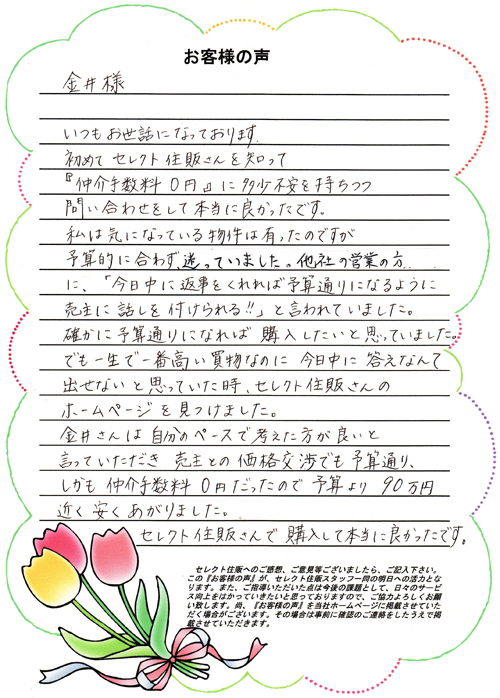 お客様の声
金井様
いつもお世話になっております。
初めて セレクト住販さんを知って
『仲介手数料 0円』に多少不安を持ちつつ
問い合わせをして本当に良かったです。
私は気になっている物件は有ったのですが
予算的に合わず、迷っていました。他社の営業の方
に、「今日中に返事をくれれば予算通りになるように
売主に話しを付けられる!!」と言われていました。
確かに予算通りになれば 購入したいと思っていました。
でも一生で一番高い買物なのに 今日中に 答えなんて
出せないと思っていた時、セレクト住販さんの
ホームページを見つけました。
金井さんは 自分のペースで考えた方が良いと
言っていただき 売主との価格交渉でも予算通り、
しかも 仲介手数料 0円だったので 予算より 90万円
近く安くあがりました。
セレクト住販さんで購入して本当に良かったです。
セレクト住販へのご感想、ご意見等ございましたら、ご記入下さい。
この『お客様の声』が、セレクト住販スタッフ一同の明日への活力とな
ります。また、ご指導いただいた点は今後の課題として、日々のサービ
ス向上をはかっていきたいと思っておりますので、ご協力よろしくお願
い致します。尚、『お客様の声』を当社ホームページに掲載させていた
だく場合がございます。その場合は事前に確認のご連絡をしたうえで掲
載させていただきます。